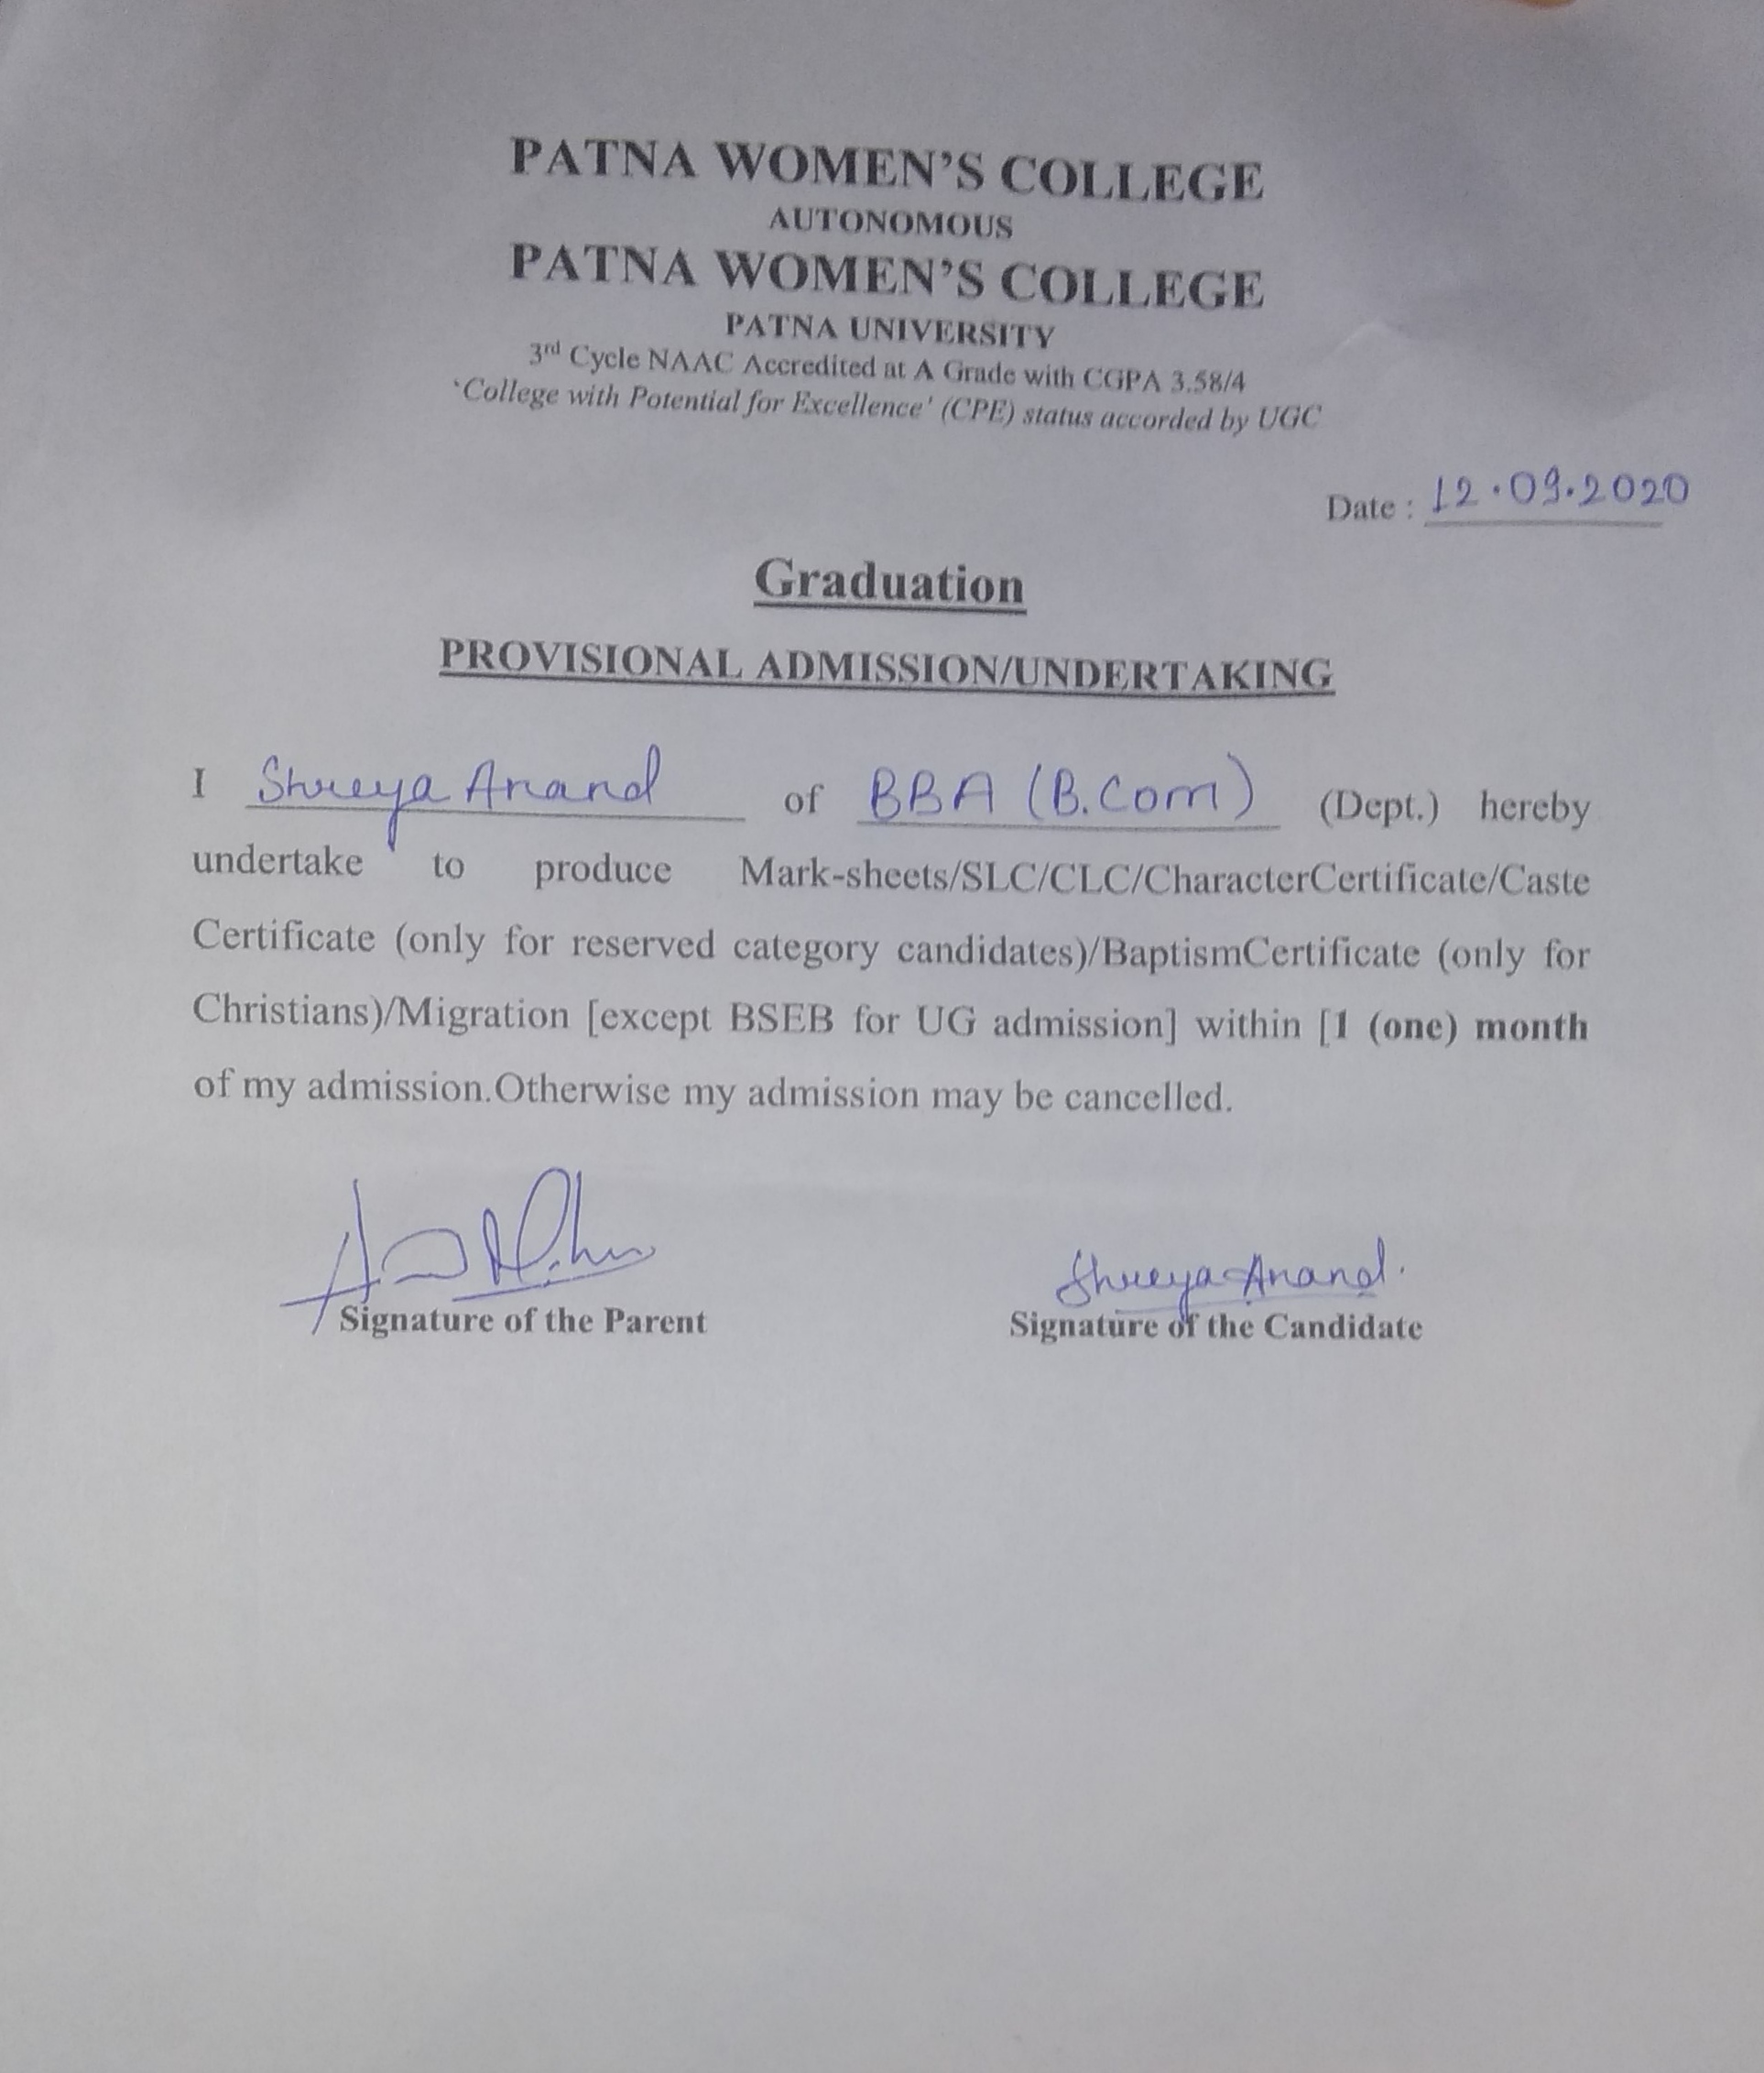 PATNA WOMEN'S COLLEGE
AUTONOMOUS
PATNA WOMEN'S COLLEGE
PATNA UNIVERSITY
3rd Cycle NAAC Accredited at A Grade with CGPA 3.58/4
'College with Potential for Excellence' (CPE) status accorded by UGC
Date : 12.09.2020
Graduation
PROVISIONAL ADMISSION/UNDERTAKING
I Shreya Anand of BBA (B.Com) (Dept.) hereby
undertake to produce Mark-sheets/SLC/CLC/CharacterCertificate/Caste
Certificate (only for reserved category candidates)/BaptismCertificate (only for
Christians)/Migration [except BSEB for UG admission] within [1 (one) month
of my admission.Otherwise my admission may be cancelled.
Shreya Anand.
Signature of the Parent Signature of the Candidate